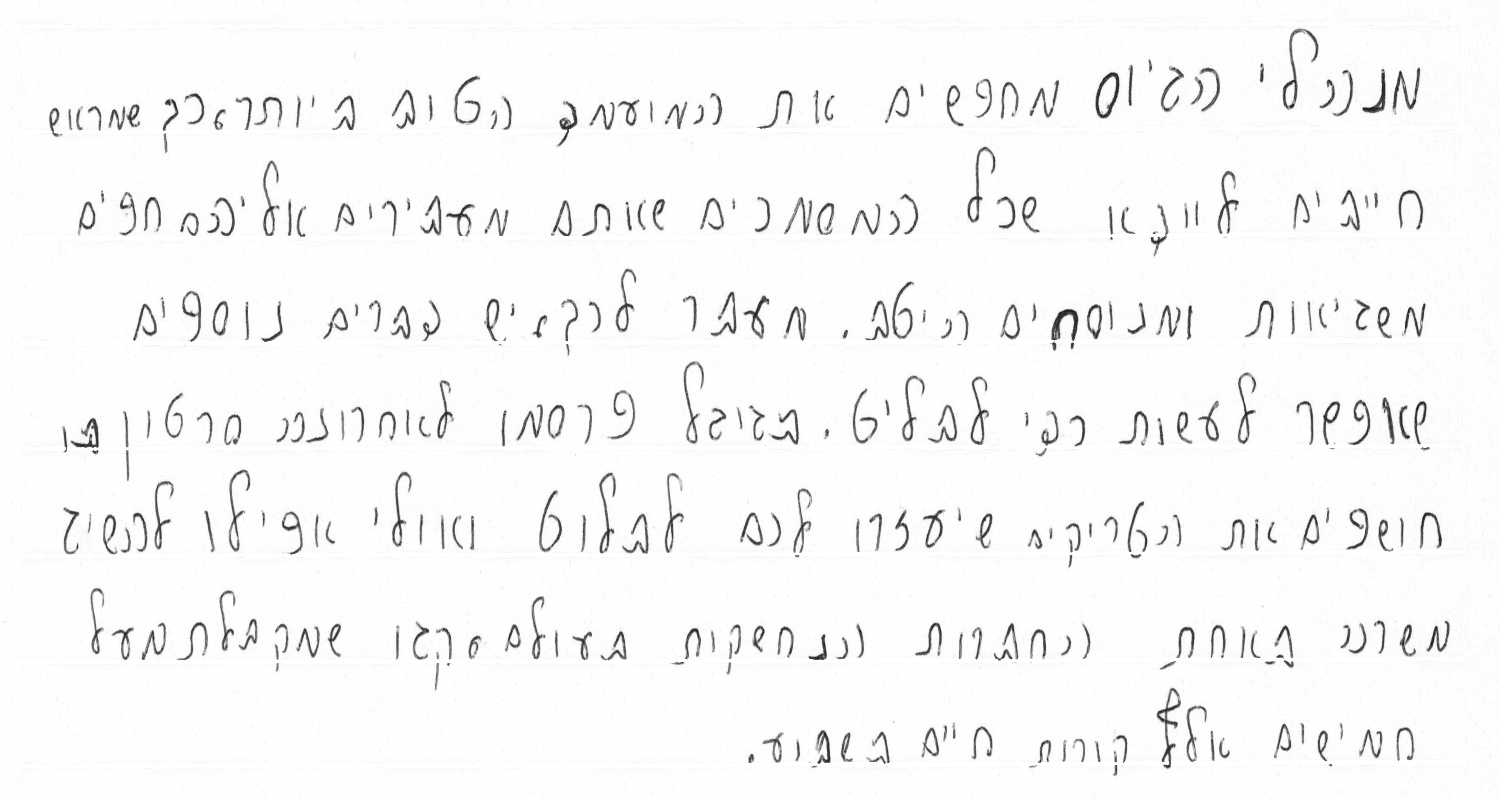 מנהלי הגיוס מחפשים את המועמד הטוב ביותר, כך שמראש
חייבים לוודא שכל המסמכים שאותם מעבירים אליהם חפים
משגיאות ומנוסחים היטב. מעבר לכך, יש דברים נוספים
שאפשר לעשות כדי לבליט. בגוגל פרסמו לאחרונה סרטון בו
חושפים את הטריקים שיעזרו לכם לבלוט ואולי אפילו להשיג
משרה באחת החברות הנחשקות בעולם, קבו שמקבלת מעל
חמישים אלף קורות חיים בשבוע.